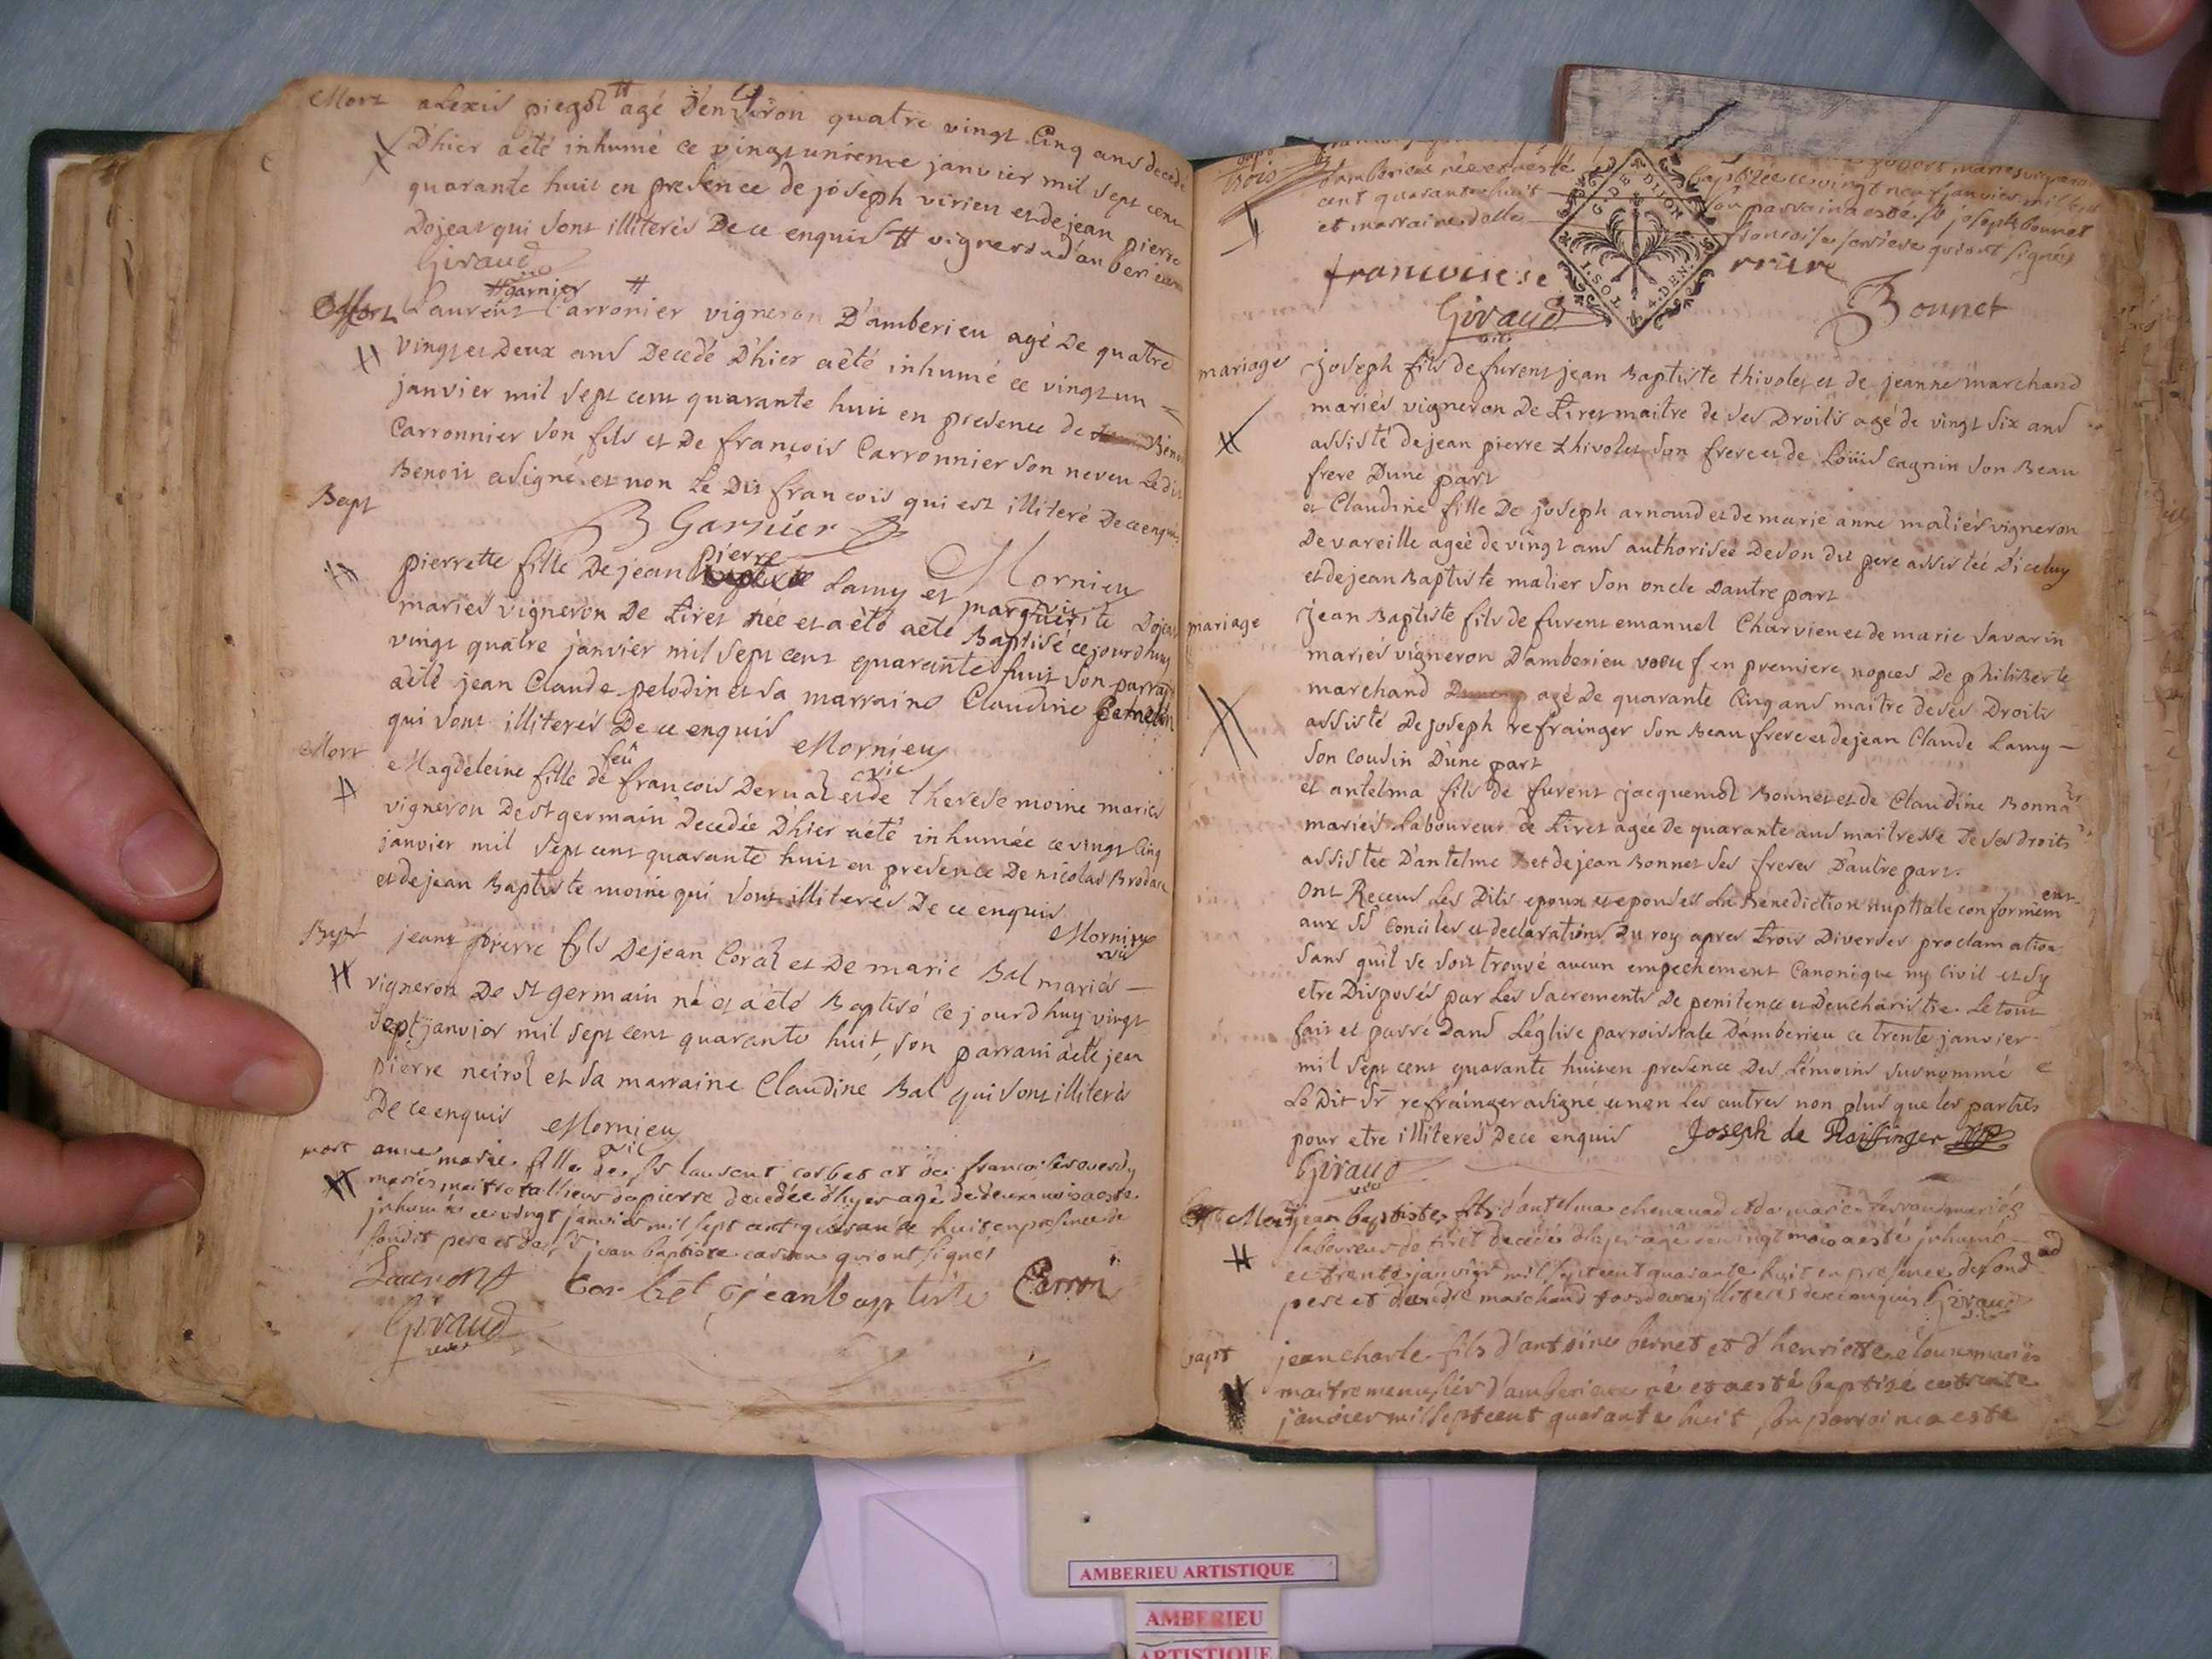 Mort alexis piegót # agé D'environ quatre vingt Cinq ans decedé
D'hier aété inhumé ce vingt unieme janvier mil sept cent
quarante huit en presence de joseph virieu et de jean pierre
Dojeat qui sont illiterés De ce enquis # vigneron d'amberieu
Giraud
vic
# garnier #
Mort Laurent Carronier vigneron D'amberieu agé De quatre
vingt et Deux ans Decedé D'hier aété inhumé ce vingt un
janvier mil sept cent quarante huit en presence de Benoit
Carronnier son fils et De françois Carronnier son neveu Ledit
Benoit asigné et non Le Dit francois qui est illiteré De ce enquis
B Garnier
Mornieu
vic
Bapt
pierrette fille De jean pierre Lamy et marguerite Dojeat
mariés vigneron De tiret née et a èté aeté Baptisé cejourdhuy
vingt quatre janvier mil sept cent quarante huit Son parrain
aété jean Claude pelodin et sa marraine Claudine
qui sont illiterés De ce enquis Mornieu
vic
Mort Magdeleine fille de feu francois Dernat et de therese moine mariés
vigneron De st germain Decedée D'hier aété inhumée ce vingt Cinq
janvier mil sept cent quarante huit en presence De nicolas Brodac
et de jean Baptiste moine qui sont illiterés De ce enquis
Mornieu
vic
Bapt jean pierre fils De jean Coral et De marie Bal mariés
vigneron De st germain né et a èté Baptisé ce jourdhuy vingt
sept janvier mil sept cent quarante huit, son parrain aété jean
pierre neirol et sa marraine Claudine Bal qui sont illiterés
De ce enquis Mornieu
vic
mort anne marie fille de sr laurent corbet et de francoise
mariés maitre tallieur dapierre decedée d'hyer agé de deux mois aesté
inhumée ce vingt janvier mil sept cent quarante huit en presence de
sondit pere et de sr jean baptiste carron qui ont signés
Lauront Corbet jéan baptiste Carron
Giraud
vic
bapt
trois
damberieu née et aesté baptizée ce vingt neuf janvier mil sept
cent quarante huit son parrain aesté sr joseph bonnet
et marraine dolle francoise serriere qui ont signés
G. DE DIJON
1. SOL 4. DEN.
francoise se rriere
Giraud
vic
Bonnet
mariage joseph fils de furent jean Baptiste thivolet et de jeanne marchand
mariés vigneron De tiret maitre de ses Droits agé de vingt six ans
assisté de jean pierre thivolet son frere et de Loüis cagnin son Beau
frere Dune part
et Claudine fille De joseph arnoud et de marie anne malier vigneron
De vareille agée de vingt ans authorisée De son dit pere assistée Diceluy
et de jean Baptiste malier son oncle Dautre part
mariage jean Baptiste fils de furent emanuel Charvien et de marie savarin
mariés vigneron D'amberieu voeuf en premiere nopces De philiberte
marchand agé De quarante Cinq ans maitre de ses Droits
assisté De joseph refrainger son Beau frere et de jean Claude Lamy
son cousin D'une part
et antelma fils de furent jacquemot Bonnet et de Claudine Bonnard
mariés Laboureur de tiret agée de quarante ans maitresse De ses droits
assistée D'antelme et de jean Bonnet ses freres D'autre part.
ont Receus Les Dits epoux et epouses La Benediction nuptiale conformement
aux SS Conciles et declarations Du roy apres trois Diverses proclamations
sans quil se soit trouvé aucun empechement Canonique ny Civil et sy
etre Disposés par Les sacrements De penitence et D'eucharistie. Le tout
fait et passé Dans L'église parroissiale D'amberieu ce trente janvier
mil sept cent quarante huit en presence Des témoins susnommé
Le Dit Sr refrainger asigné et non les autres non plus que les parties
pour etre illiterés De ce enquis Joseph de Raiffinger
Giraud
vic
Mort jean baptiste fils d'antelma chenavad et de marie ferrand mariés
laboureur de tiret decedé d'hyer agé de vingt mois aesté inhumé
ce trente janvier mil sept cent quarante huit en presence de sond
pere et d'andré marchand tous deux illiterés de ce enquis Giraud
vic
bapt jean charle fils d'antoine bernet et d'henriette mariés
maitre menusier d'amberieu né et aesté baptizé ce trente
janvier mil sept cent quarante huit, son parrain aesté
AMBERIEU ARTISTIQUE
AMBERIEU
ARTISTIQUE